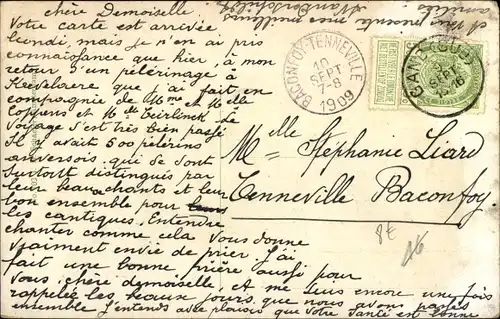 chère Demoiselle,
Votre carte est arrivée
lundi, mais je n'en ai pris
connaissance que hier, à mon
retour d'un pélérinage à
Kevelaere que j'ai fait en
compagnie de Mme et Melle
Coppens et Mr Teirlinck. Le
voyage s'est très bien passé
Il y avait 500 pélérins
anversois qui se sont
surtout distingués par
leur beaux chants et leur
bon ensemble pour
les cantiques. Entendre
chanter comme cela vous donne
vraiment envie de prier. J'ai
fait une bonne prière aussi pour
vous, chère demoiselle, et me suis encore une fois
rappelée les beaux jours que nous avons passés
ensemble. J'entends avec plaisir que votre santé est bonne
BACONFOY-TENNEVILLE
10
SEPT
7-8
1909
GAND (SUD)
SEPT
Melle Stéphanie Liard
Tenneville Baconfoy
8€